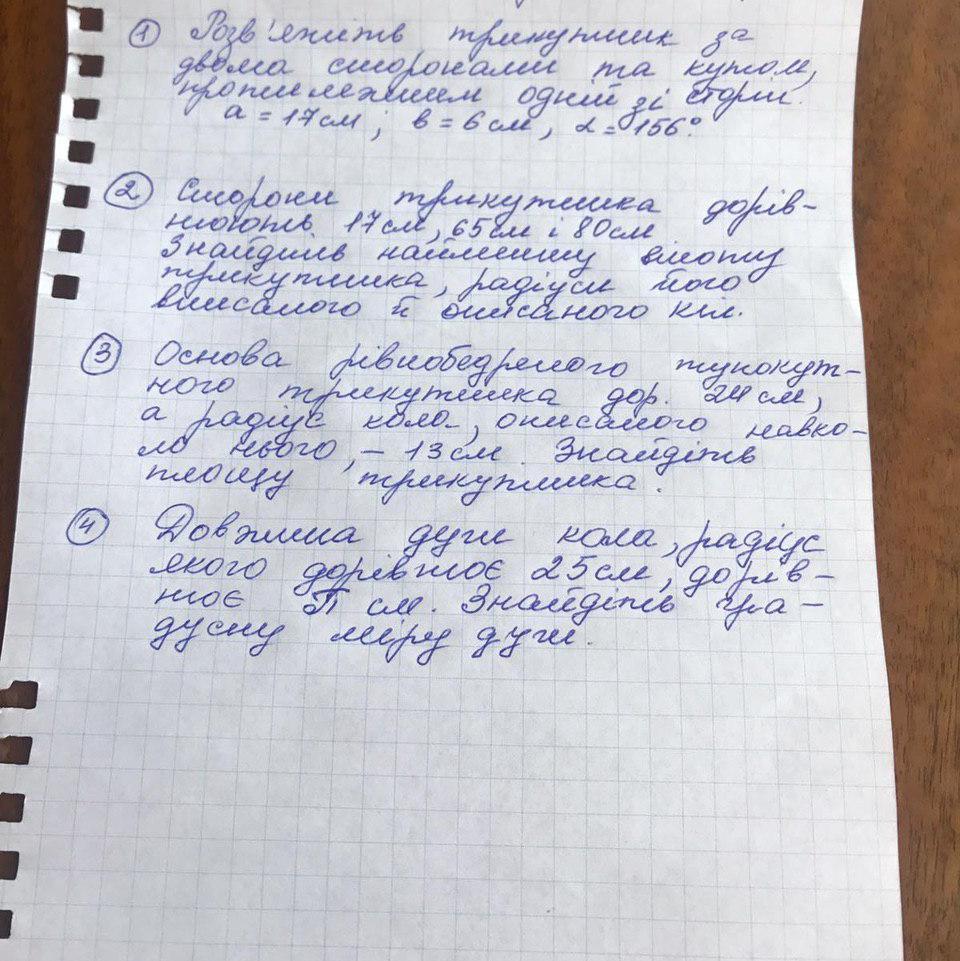 ① Розв'яжіть трикутник за
двома сторонами та кутом,
протилежним одній зі сторін.
a = 17 см ; в = 6 см , α = 156°.
② Сторони трикутника дорів-
нюють 17 см, 65 см і 80 см
Знайдіть найменшу висоту
трикутника, радіуси його
вписаного й описаного кіл.
③ Основа рівнобедреного тупокут-
ного трикутника дор. 24 см,
а радіус кола, описаного навко-
ло нього, – 13 см. Знайдіть
площу трикутника.
④ Довжина дуги кола, радіус
якого дорівнює 25 см, дорів-
нює π см. Знайдіть гра-
дусну міру дуги.